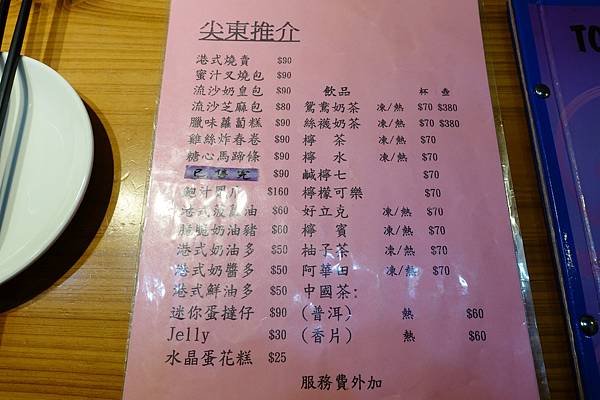 尖東推介
港式燒賣 $90
蜜汁叉燒包 $90
流沙奶皇包 $90
流沙芝麻包 $80
臘味蘿蔔糕 $90
雞絲炸春卷 $90
糖心馬蹄條 $90
已售完 $90
鮑汁鳳爪 $160
港式豉蔥油 $60
脆脆奶油豬 $60
港式奶油多 $50
港式奶醬多 $50
港式鮮油多 $50
迷你蛋撻仔 $90
Jelly $30
水晶蛋花糕 $25
飲品 杯 壺
鴛鴦奶茶 凍/熱 $70 $380
絲襪奶茶 凍/熱 $70 $380
檸茶 凍/熱 $70
檸水 凍/熱 $70
鹹檸七 $70
檸檬可樂 $70
好立克 凍/熱 $70
檸賓 凍/熱 $70
柚子茶 凍/熱 $70
阿華田 凍/熱 $70
中國茶:
(普洱) 熱 $60
(香片) 熱 $60
服務費外加
TO